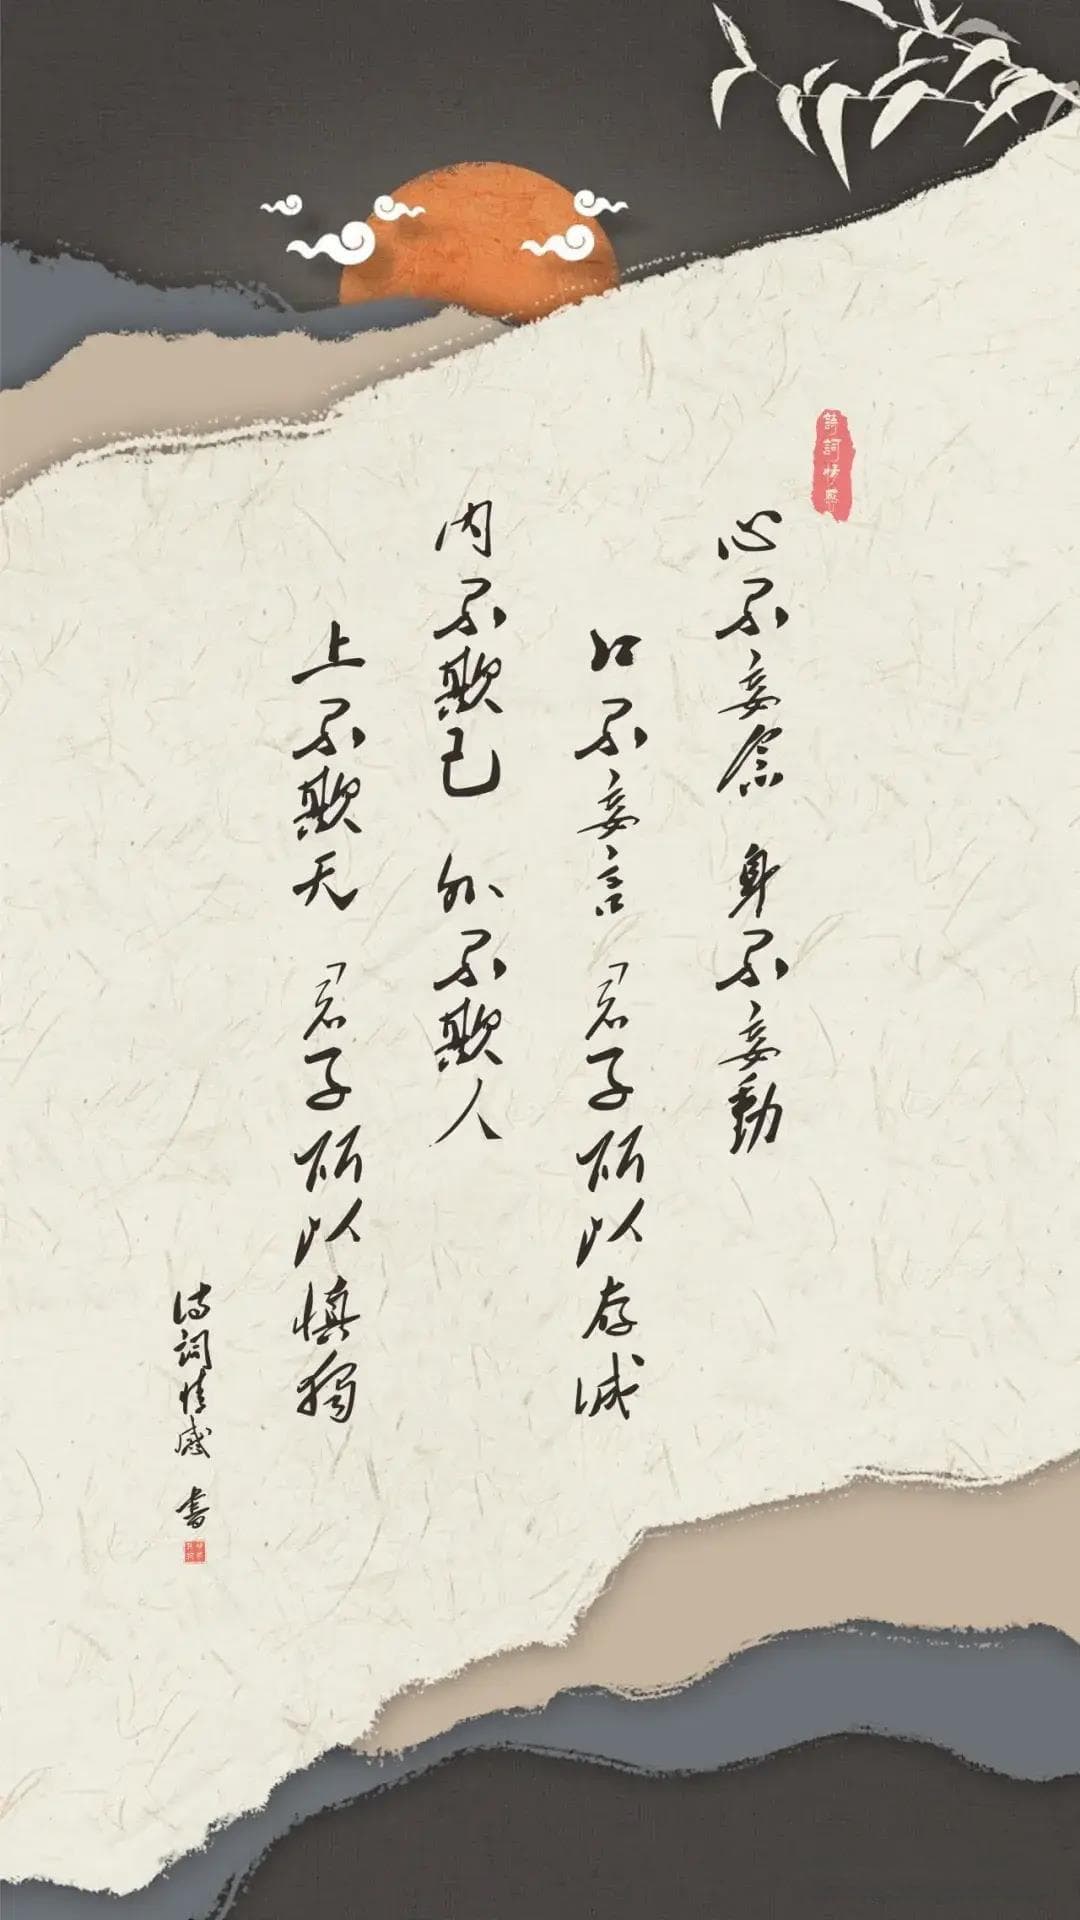 詩詞情感
心不妄念 身不妄動
口不妄言 君子所以存诚
内不欺己 外不欺人
上不欺天 君子所以慎独
诗词情感 书